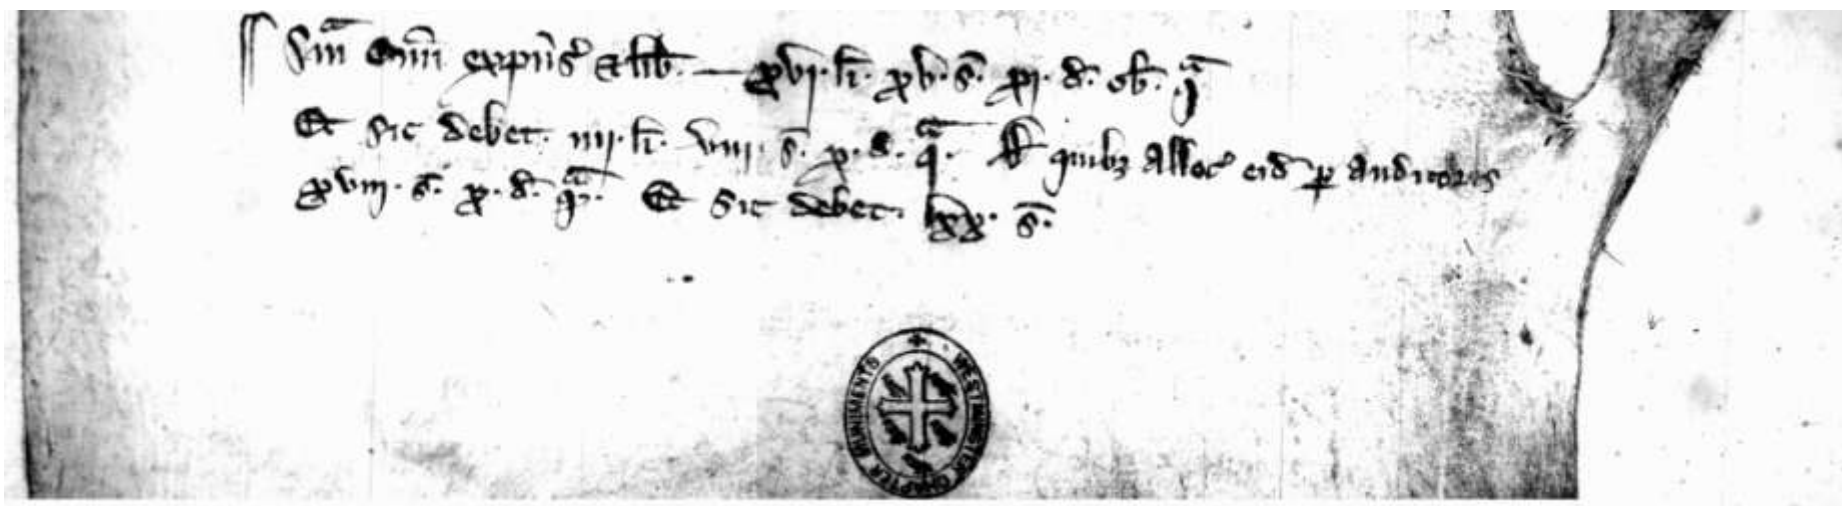 Sm̄a om̄i expn̄s̄ & lib̄. — xvj. li. xv. s̄. xj. d̄. ob̄. qᵃ
Et sic debet. iiij. li. viij. s̄. x. d̄. qᵃ. De quibꝫ alloc̄ eid̄ ꝑ auditores
xviij. s̄. x. d̄. qᵃ. Et sic debet. lxx. s̄.
WESTMINSTER CHAPTER MUNIMENTS